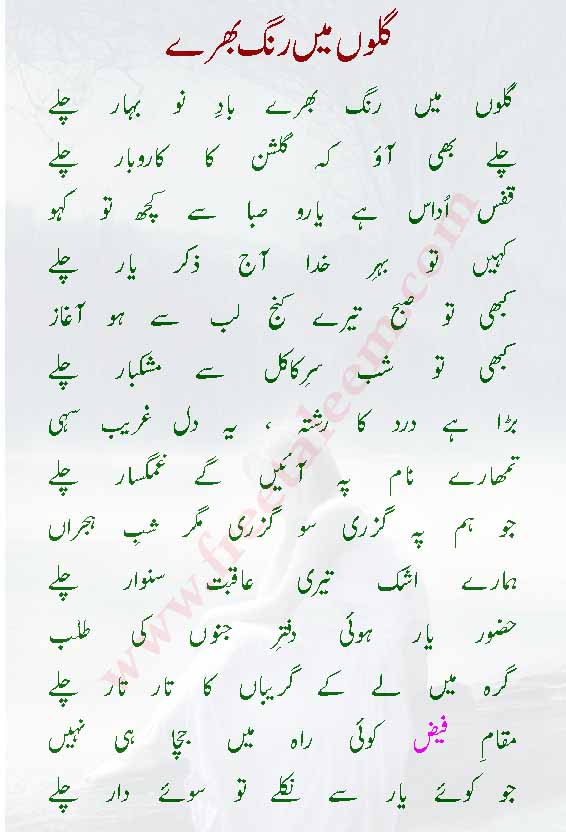 گلوں میں رنگ بھرے
گلوں میں رنگ بھرے بادِ نو بہار چلے
چلے بھی آؤ کہ گلشن کا کاروبار چلے
قفس اُداس ہے یارو صبا سے کچھ تو کہو
کہیں تو بہرِ خدا آج ذکر یار چلے
کبھی تو صبح تیرے کنج لب سے ہو آغاز
کبھی تو شب سرِکاکل سے مشکبار چلے
بڑا ہے درد کا رشتہ ، یہ دل غریب سہی
تمھارے نام پہ آئیں گے غمگسار چلے
جو ہم پہ گزری سو گزری مگر شبِ ہجراں
ہمارے اشک تیری عاقبت سنوار چلے
حضور یار ہوئی دفترِ جنوں کی طلب
گرہ میں لے کے گریباں کا تار تار چلے
مقامِ فیض کوئی راہ میں جچا ہی نہیں
جو کوئے یار سے نکلے تو سوئے دار چلے
www.freetaleem.com